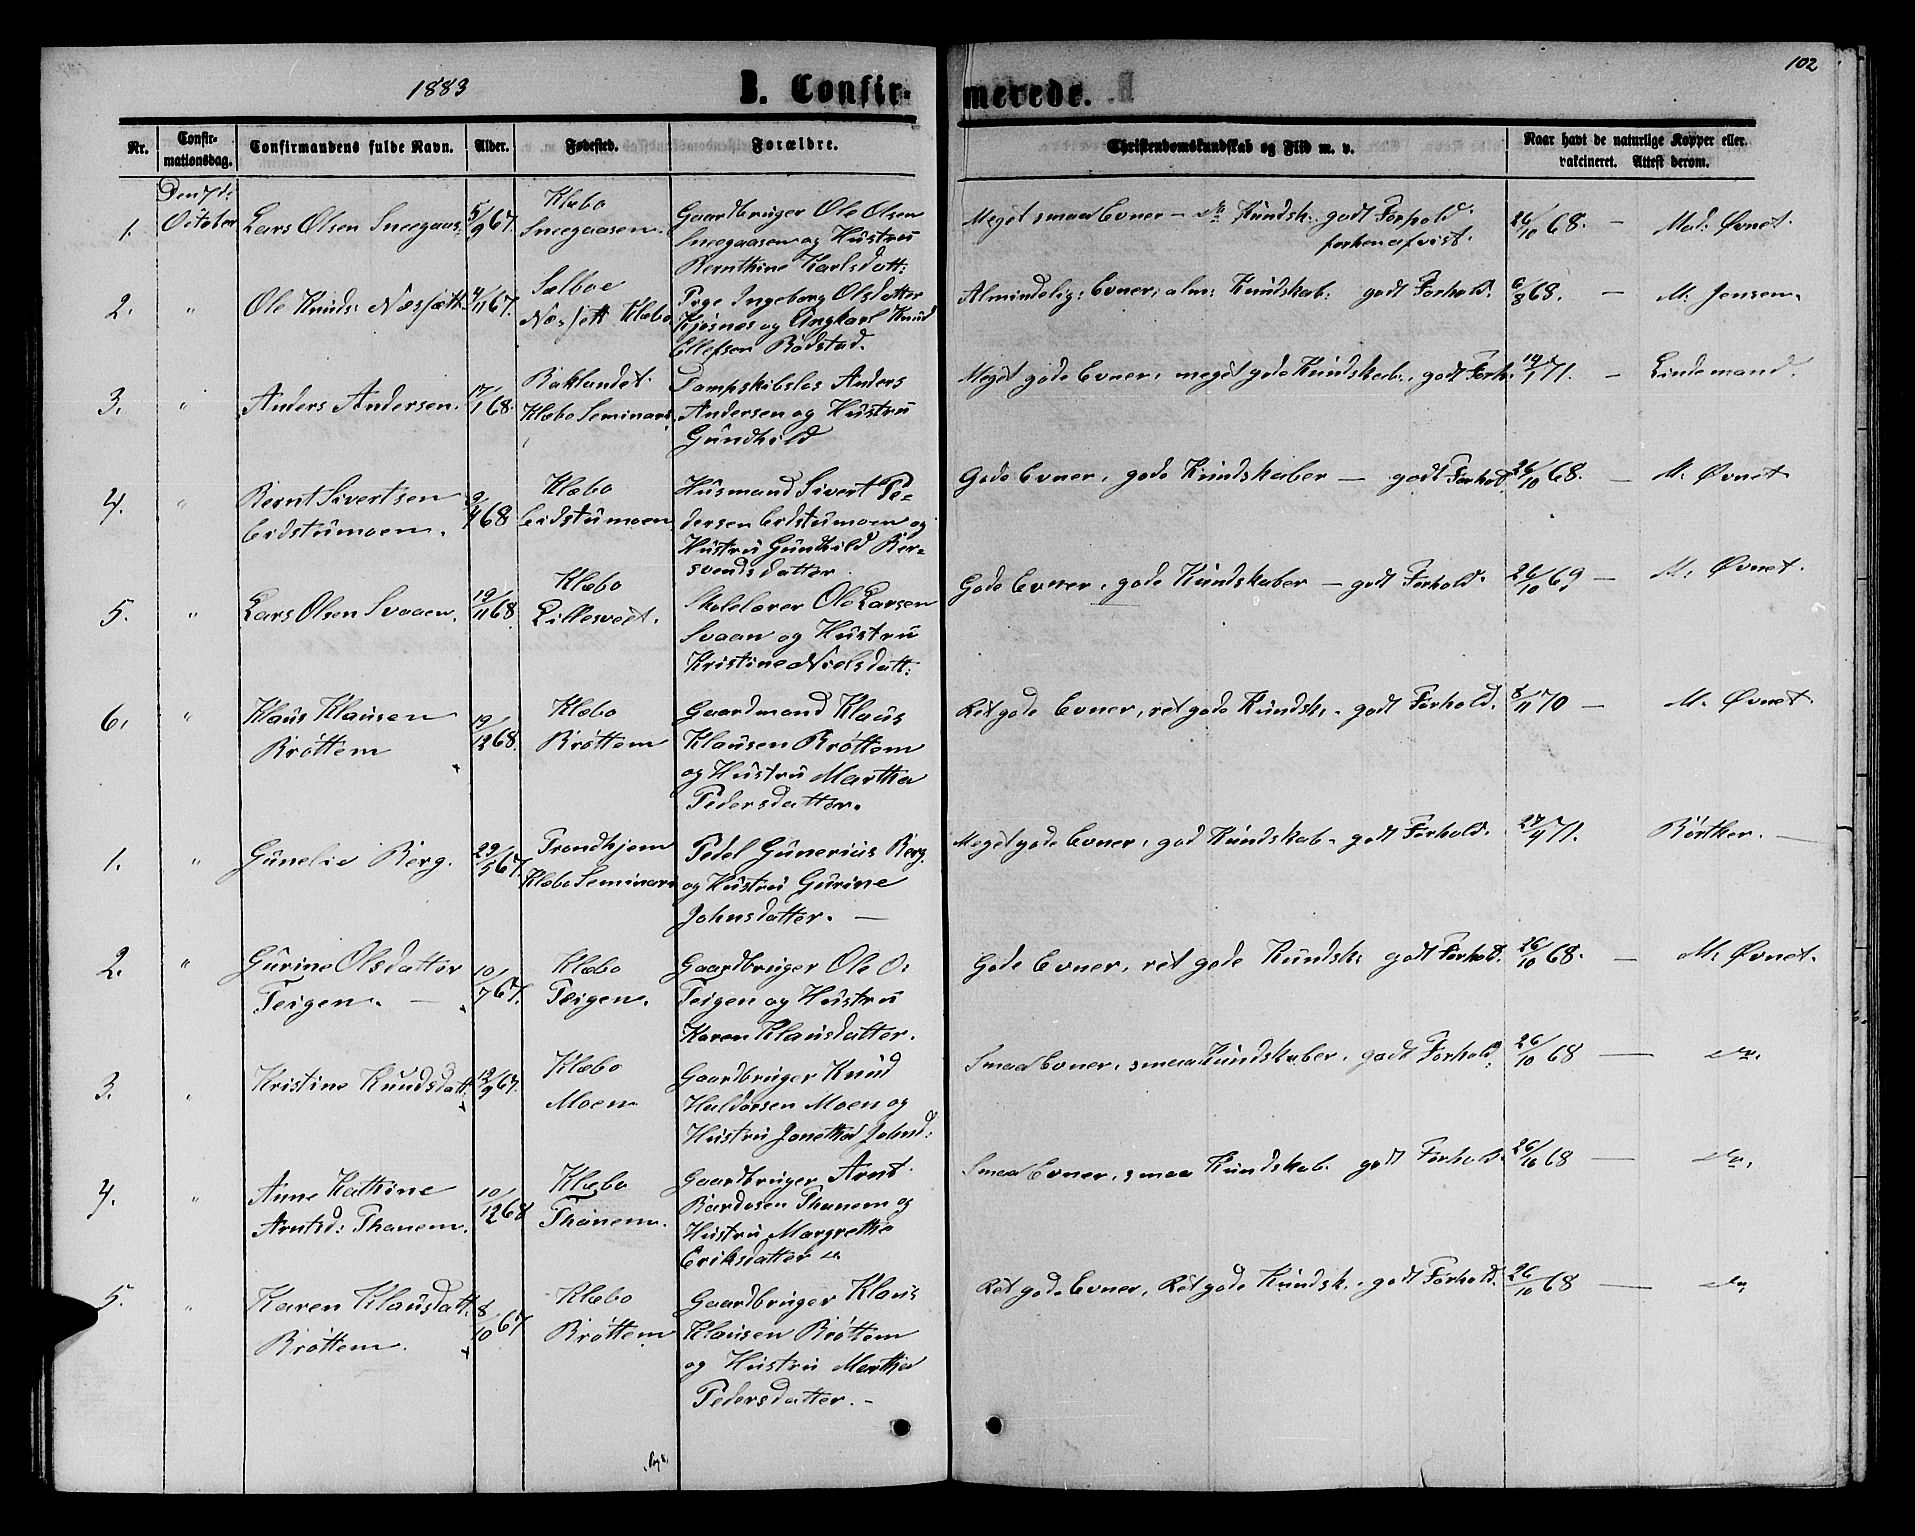 1883
B. Confir-
merede.
102
Nr.
Confir-
mationsdag.
Confirmandens fulde Navn.
Alder.
Fødested.
Forældre.
Christendomskundskab og Flid m. v.
Naar havt de naturlige Kopper eller
vakcineret. Attest derom.
Den 7de
1. October Lars Olsen Sneegaas. 5/9 67. Klæbo
Sneegaasen. Gaardbruger Ole Olsen
Sneegaasen og Hustru
Bernthine Karlsdatt: Meget smaa Evner - do Kundsk. godt Forhold.
forhen afvist. 26/10 68. — Mad: Øvnet.
2. " Ole Knuds: Næssæth. 4/11 67. Sælboe
Næssett Klæbo Pige Ingeborg Olsdatter
Kjøsnæs og Ungkarl Knud
Ellefsen Rødstad. Almindelig: Evner; alm: Kundskab: godt Forhold. 6/8 68. — M. Jensen.
3. " Anders Andersen. 17/1 68. Baklandet.
Klæbo Seminar. Dampskibslos Anders
Andersen og Hustru
Gundhild Meget gode Evner, meget gode Kundskab., godt Forh. 14/1 71. — Lindemand.
4. " Bernt Sivertsen
Eidstumoen. 2/4 68 Klæbo
Eidstumoen Husmand Sivert Pe-
dersen Eidstumoen og
Hustru Gunhild Ber-
svendsdatter Gode Evner, gode Kundskaber — godt Forhold. 26/10 68. — M. Øvnet
5. " Lars Olsen Svaaen. 19/11 68. Klæbo
Lillesveet. Skolelærer Ole Larsen
Svaan og Hustru
Kristine Nielsdatt: Gode Evner, gode Kundskaber — godt Forhold. 26/10 69 — M. Øvnet.
6. " Klaus Klausen
Brøttem 19/12 68. Klæbo
Brøttem Gaardmand Klaus
Klausen Brøttem
og Hustru Martha
Pedersdatter. Ret gode Evner, ret gode Kundsk. - godt Forhold. 8/11 70 — M. Øvnet.
1. " Gunelie Berg. 29/5 67. Trondhjem
Klæbo Seminar Pedel Gunerius Berg
og Hustru Gurine
Johnsdatter. — Meget gode Evner, god Kundskab - godt Forhold. 27/4 71. Børtker. —
2. " Gurine Olsdatter
Teigen. — 10/7 67. Klæbo
Teigen. Gaardbruger Ole O:
Teigen og Hustru
Karen Klausdatter. Gode Evner, ret gode Kundsk: godt Forhold. 26/10 68. — M. Øvnet.
3. " Kristine Knudsdatt. 12/9 67. Klæbo
Moen Gaardbruger Knud
Haldorsen Moen og
Hustru Janetha Johnd: Smaa Evner, smaa Kundskaber, godt Forhold. 26/10 68 — do.
4. " Anne Kathrine
Arntsd: Thanem. 10/12 68 Klæbo
Thanem. Gaardbruger Arnt
Bardosen Thanem og
Hustru Margrethe
Eriksdatter Smaa Evner, smaa Kundskab. godt Forhold. 26/10 68 — do.
5. " Karen Klausdatt.
Brøttem. 8/10 67 Klæbo
Brøttem Gaardbruger Klaus
Klausen Brøttem
og Hustru Martha
Pedersdatter. — Ret gode Evner, Ret gode Kundsk., godt Forhold. 26/10 68 — do